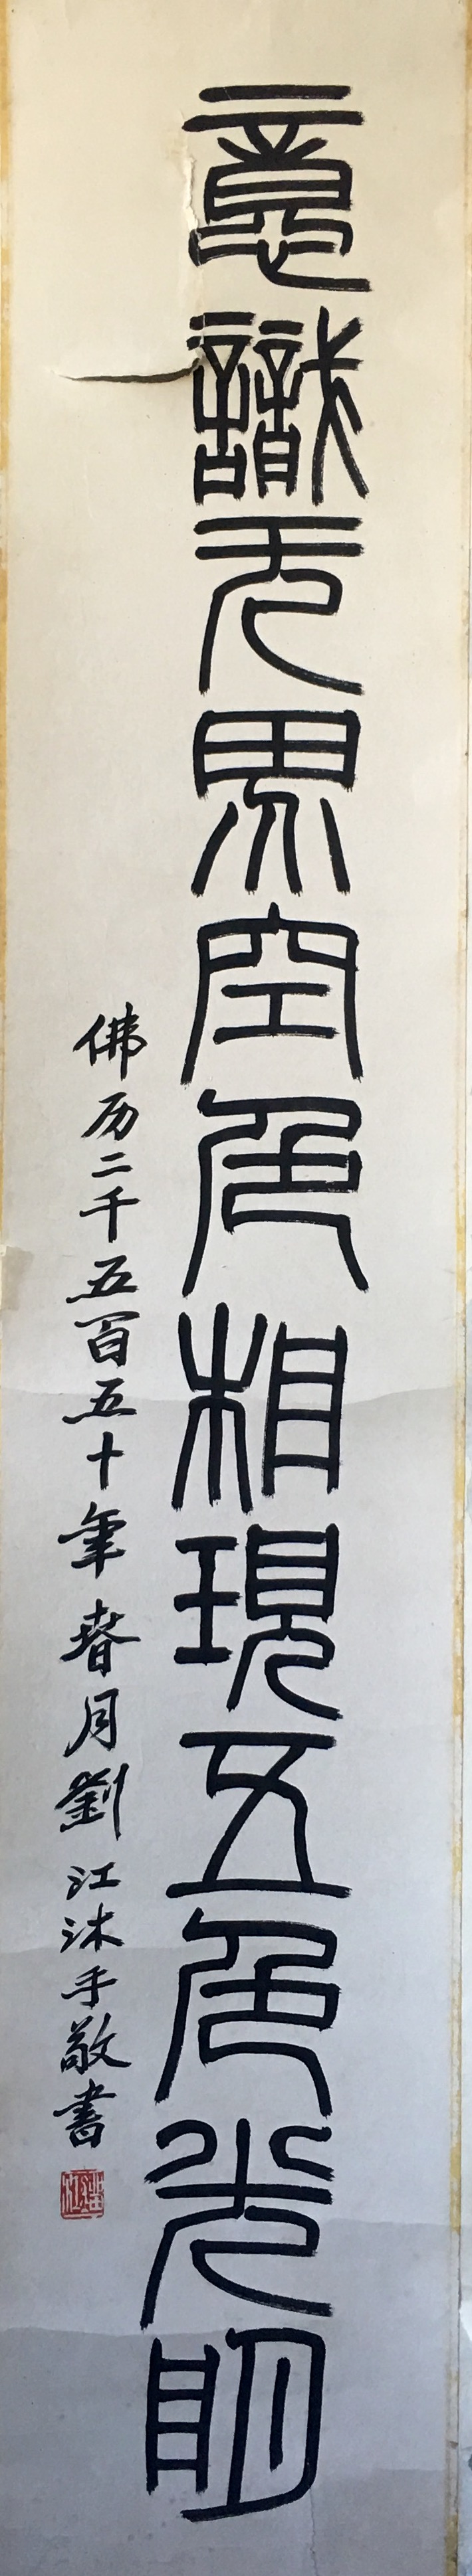 意識无界空色相現五色光明
佛历二千五百五十年春月劉江沐手敬書